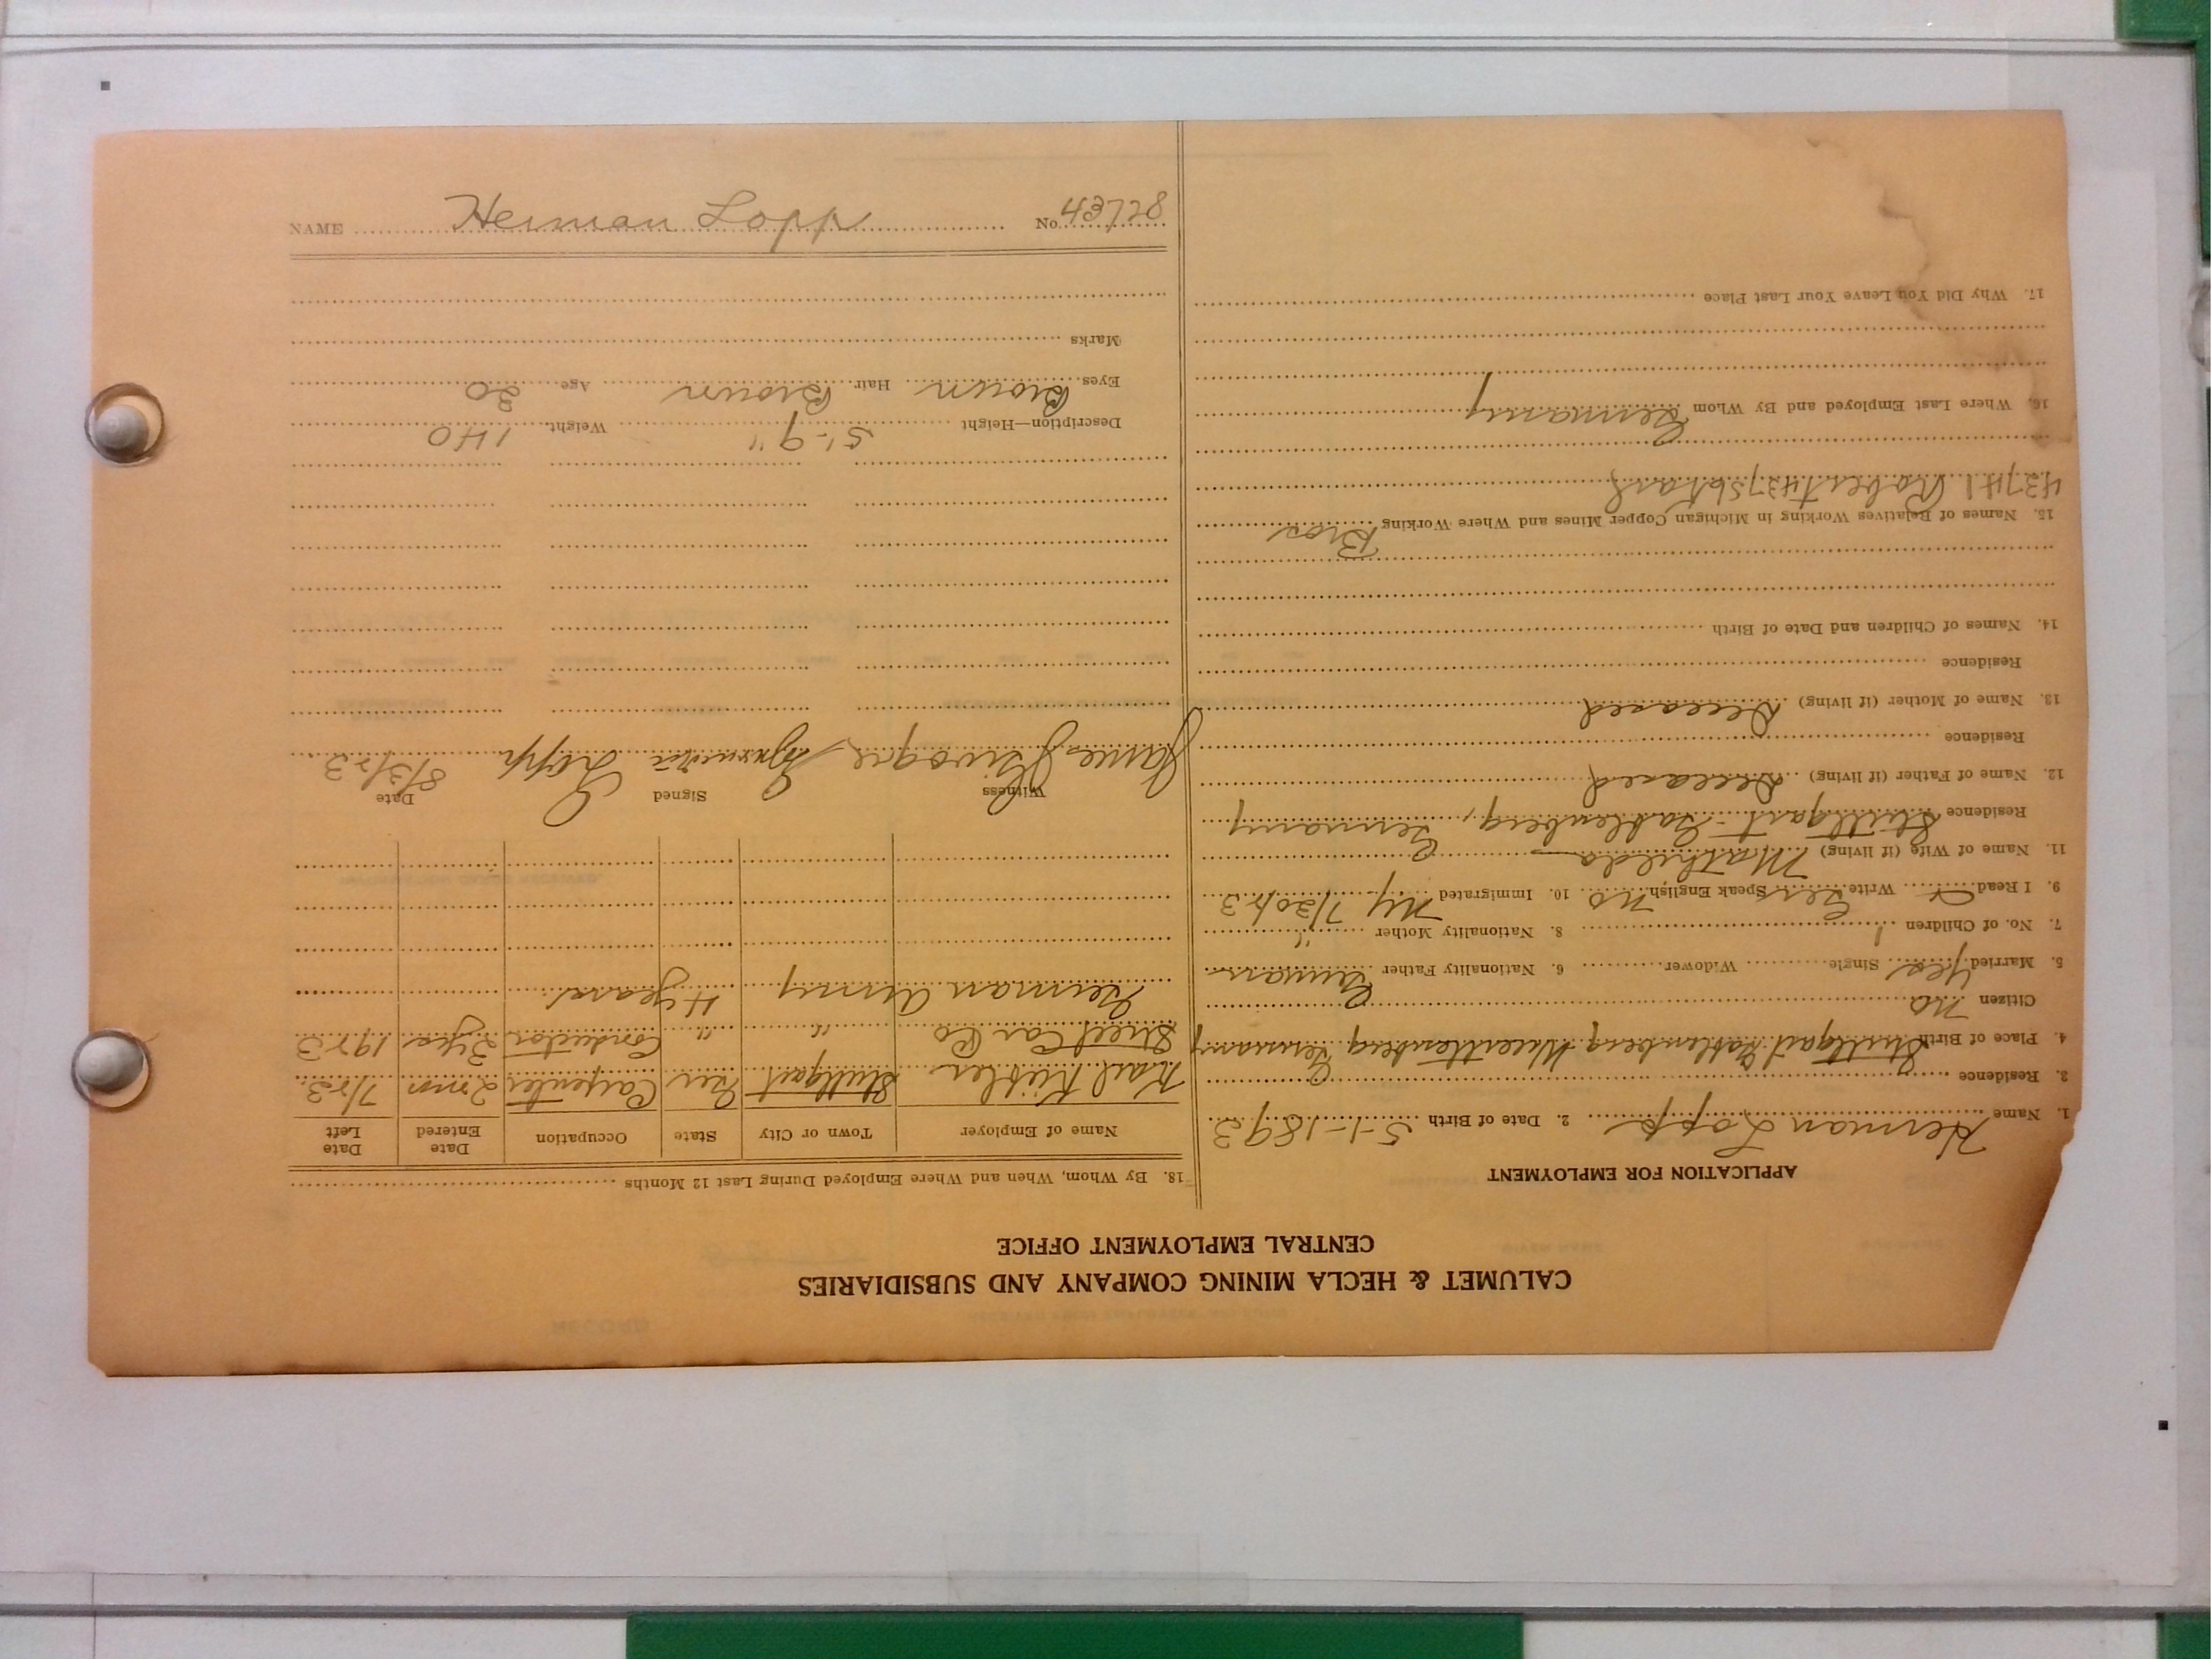 CALUMET & HECLA MINING COMPANY AND SUBSIDIARIES
CENTRAL EMPLOYMENT OFFICE
APPLICATION FOR EMPLOYMENT
1. Name Herman Lopp 2. Date of Birth 5-1-1893
3. Residence
4. Place of Birth Stuttgart Gablenberg Wuerttenberg Germany
Citizen no
5. Married yes Single Widower 6. Nationality Father German
7. No. of Children 1 8. Nationality Mother "
9. I Read Write Ger Speak English no 10. Immigrated NY 7/30/23
11. Name of Wife (if living) Mathilda
Residence Stuttgart-Gablenberg, Germany
12. Name of Father (if living) Deceased
Residence
13. Name of Mother (if living) Deceased
Residence
14. Names of Children and Date of Birth
15. Names of Relatives Working in Michigan Copper Mines and Where Working Bros
42741 Robert 42756 Karl
16. Where Last Employed and By Whom Germany
17. Why Did You Leave Your Last Place
18. By Whom, When and Where Employed During Last 12 Months
Name of Employer Town or City State Occupation Date Entered Date Left
Karl Kübler Stuttgart Ger Carpenter 2 mo 7/23
Street Car Co " " Conductor 3 yrs 1923
German Army 4 years
Witness Signed Date
James Lopp 8/3/23
Description—Height 5'-9" Weight 140
Eyes Brown Hair Brown Age 30
Marks
NAME Herman Lopp No 43728